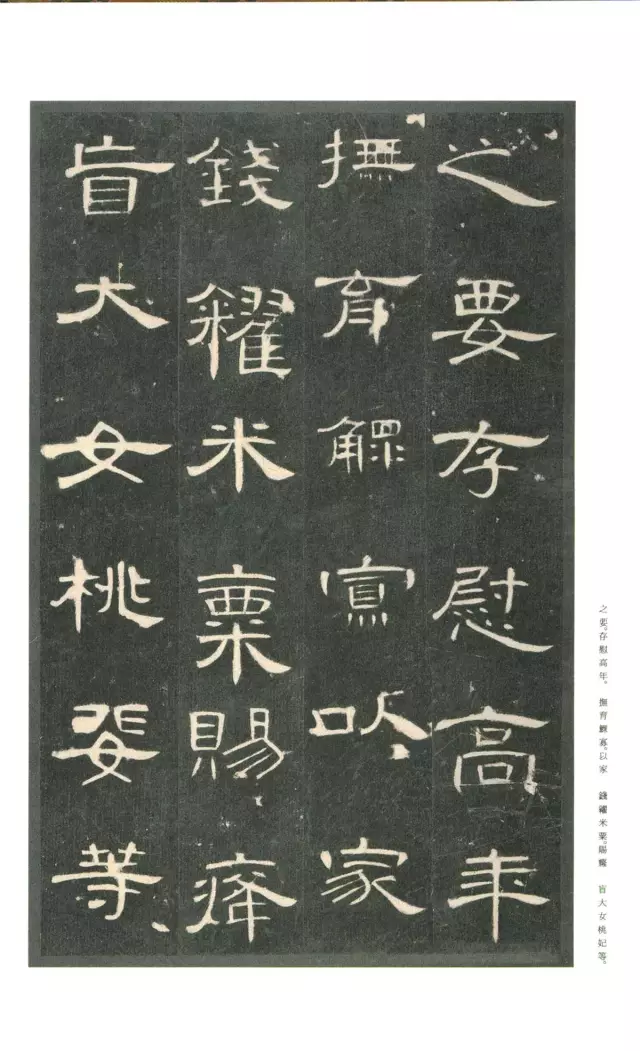 之要存慰高年
撫育鰥寡以家
錢糴米粟賜癃
盲大女桃婓等
之要。存慰高年。撫育鰥寡。以家錢糴米粟。賜癃盲大女桃妃等。